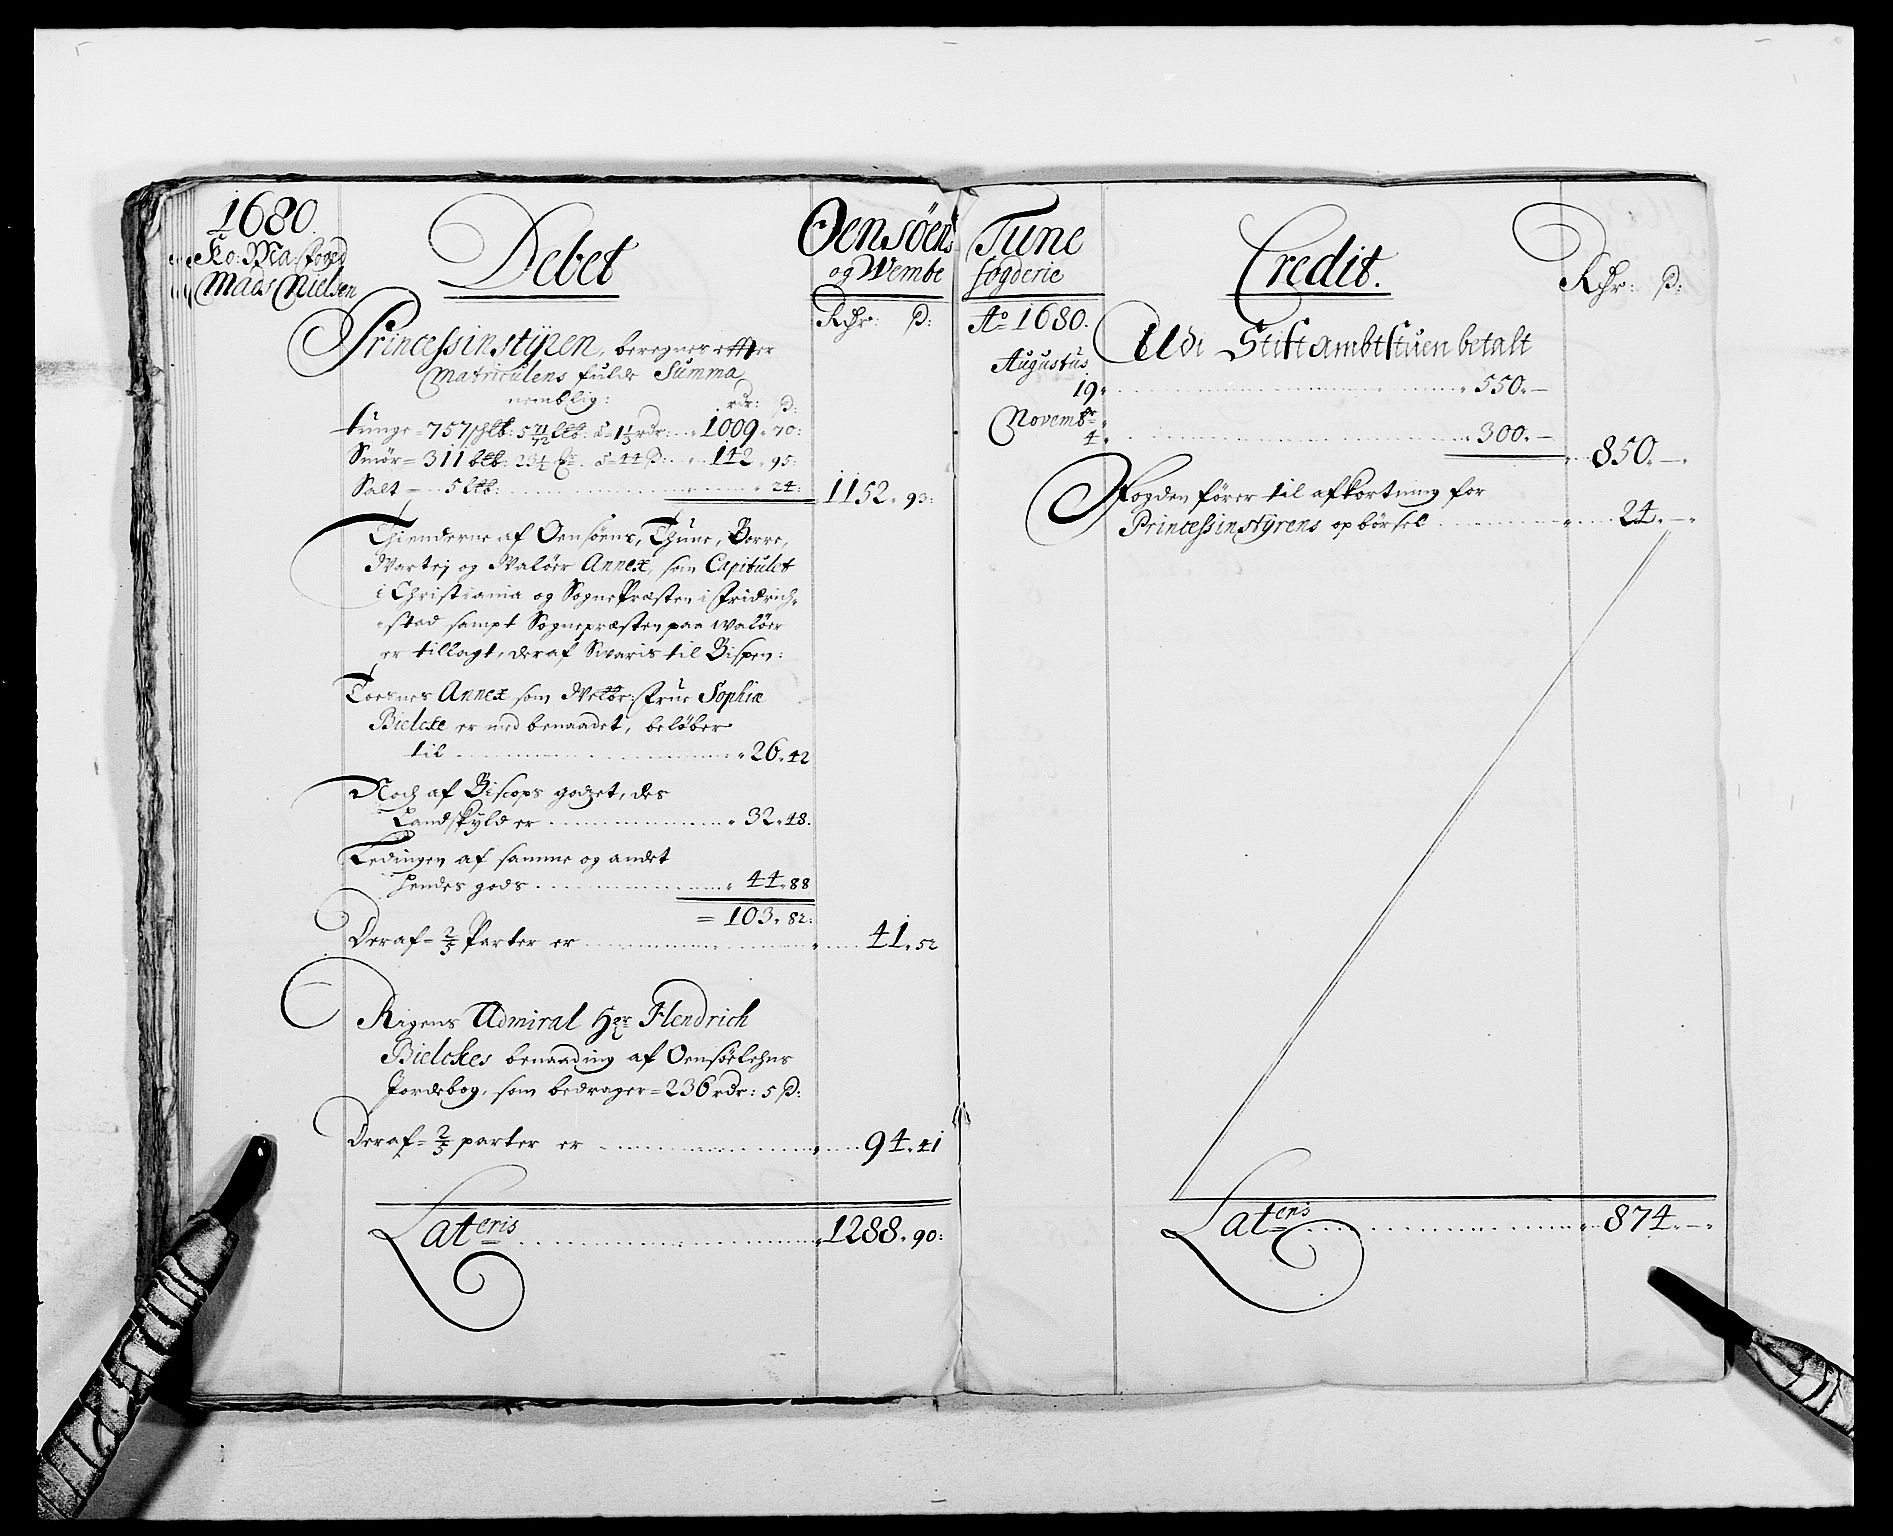 1680.
Ko: Ma: foged
Mads Nielsen
Debet
Oensöens
og Wembe
Rdr: ß:
Princessinstÿren, beregnes efter
Matriculens fulde Summa,
nemblig:
rdr: ß:
tunge = 757 schlb: 5 71/72 ltb: à = 1 1/3 rdr: 1009 „ 70:
Smör = 311 btb: 23 1/2 à = 44 ß: 142 „ 95:
Salt = 5 ltb: „ 24:
1152 „ 93:
Thienderne af Oensöens, Thune, Borre,
Wartej og Walöer Annex, som Capitulet
i Christiania og SognePræsten i Fridrich-
-stad sampt Sognepræsten paa Walöer
er tillagt, deraf Swaris til Bispen:
Toesnes Annex som Welbr: frue Sophiæ
Bielcke er med benaadet, belöber
til „ 26 „ 42
Noch af Biscops godzet, des
Landskyld er „ 32 „ 48.
Ledingen af samme og andet
hendes gods „ 44 „ 88
= 103 „ 82:
Deraf = 2/5 Parter er „ 41 „ 52
Rigens Admiral Her Hendrich
Bielckes benaading af Oensöelehns
Jordebog, som bedrager = 236 rdr: 5 ß:
Deraf = 2/5 parter er „ 94 „ 41
Lateris „ 1288 „ 90:
Tune
fogderie
Credit.
Rdr: ß:
Ao 1680.
Udi Stiftambtstuen betalt
Augustus
19 „ „ 550 „ —
Novembr
4 „ „ 300 „ —
„ 850 „ — „
Fogden förer til afkortning for
Princessinstÿrens opbörsel „ 24 „ — „
Lateris „ 874 „ — „